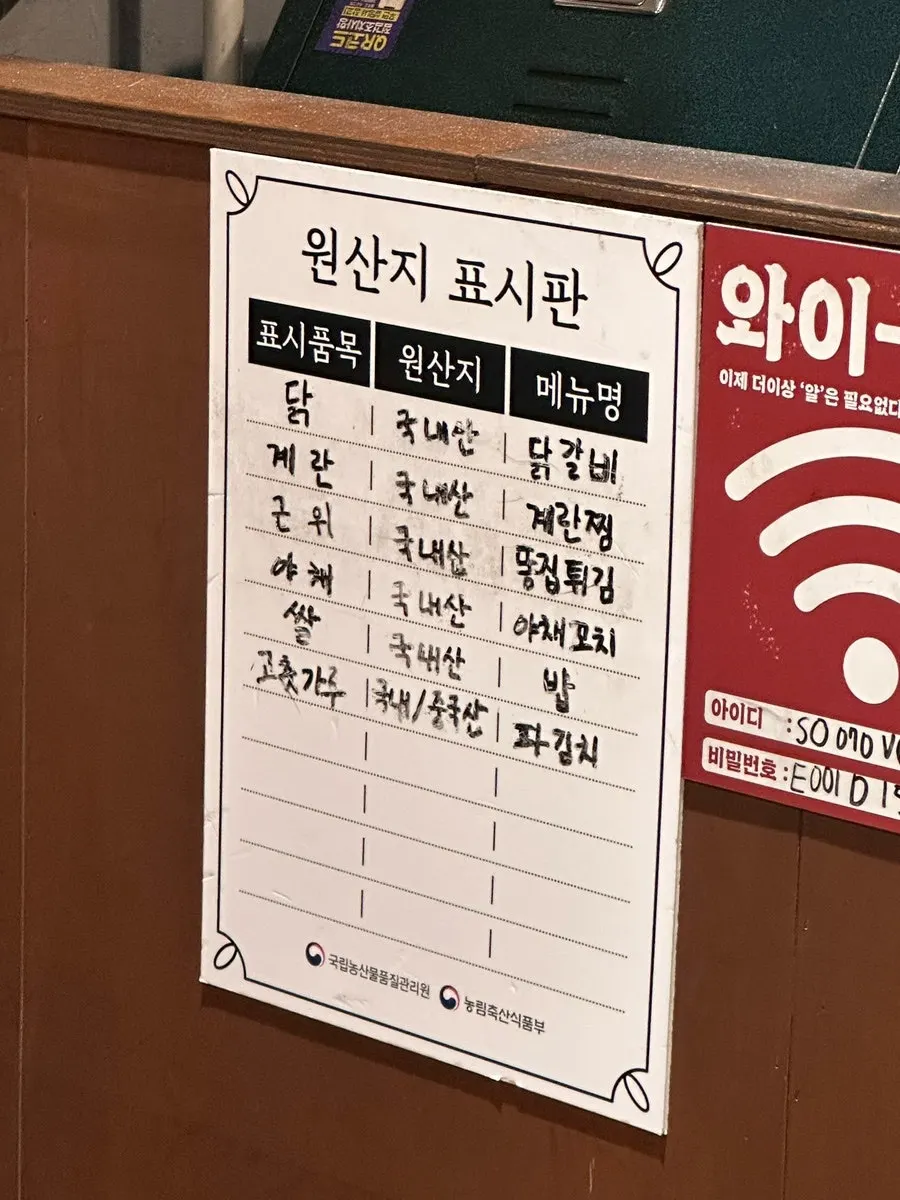 QR코드
원산지 표시판
표시품목 원산지 메뉴명
닭 국내산 닭갈비
계란 국내산 계란찜
근위 국내산 똥집튀김
야채 국내산 야채꼬치
쌀 국내산 밥
고춧가루 국내/중국산 파김치
국립농산물품질관리원 농림축산식품부
와이
이제 더이상 '알'은 필요없다
아이디 :SO070V
비밀번호 :E001D1